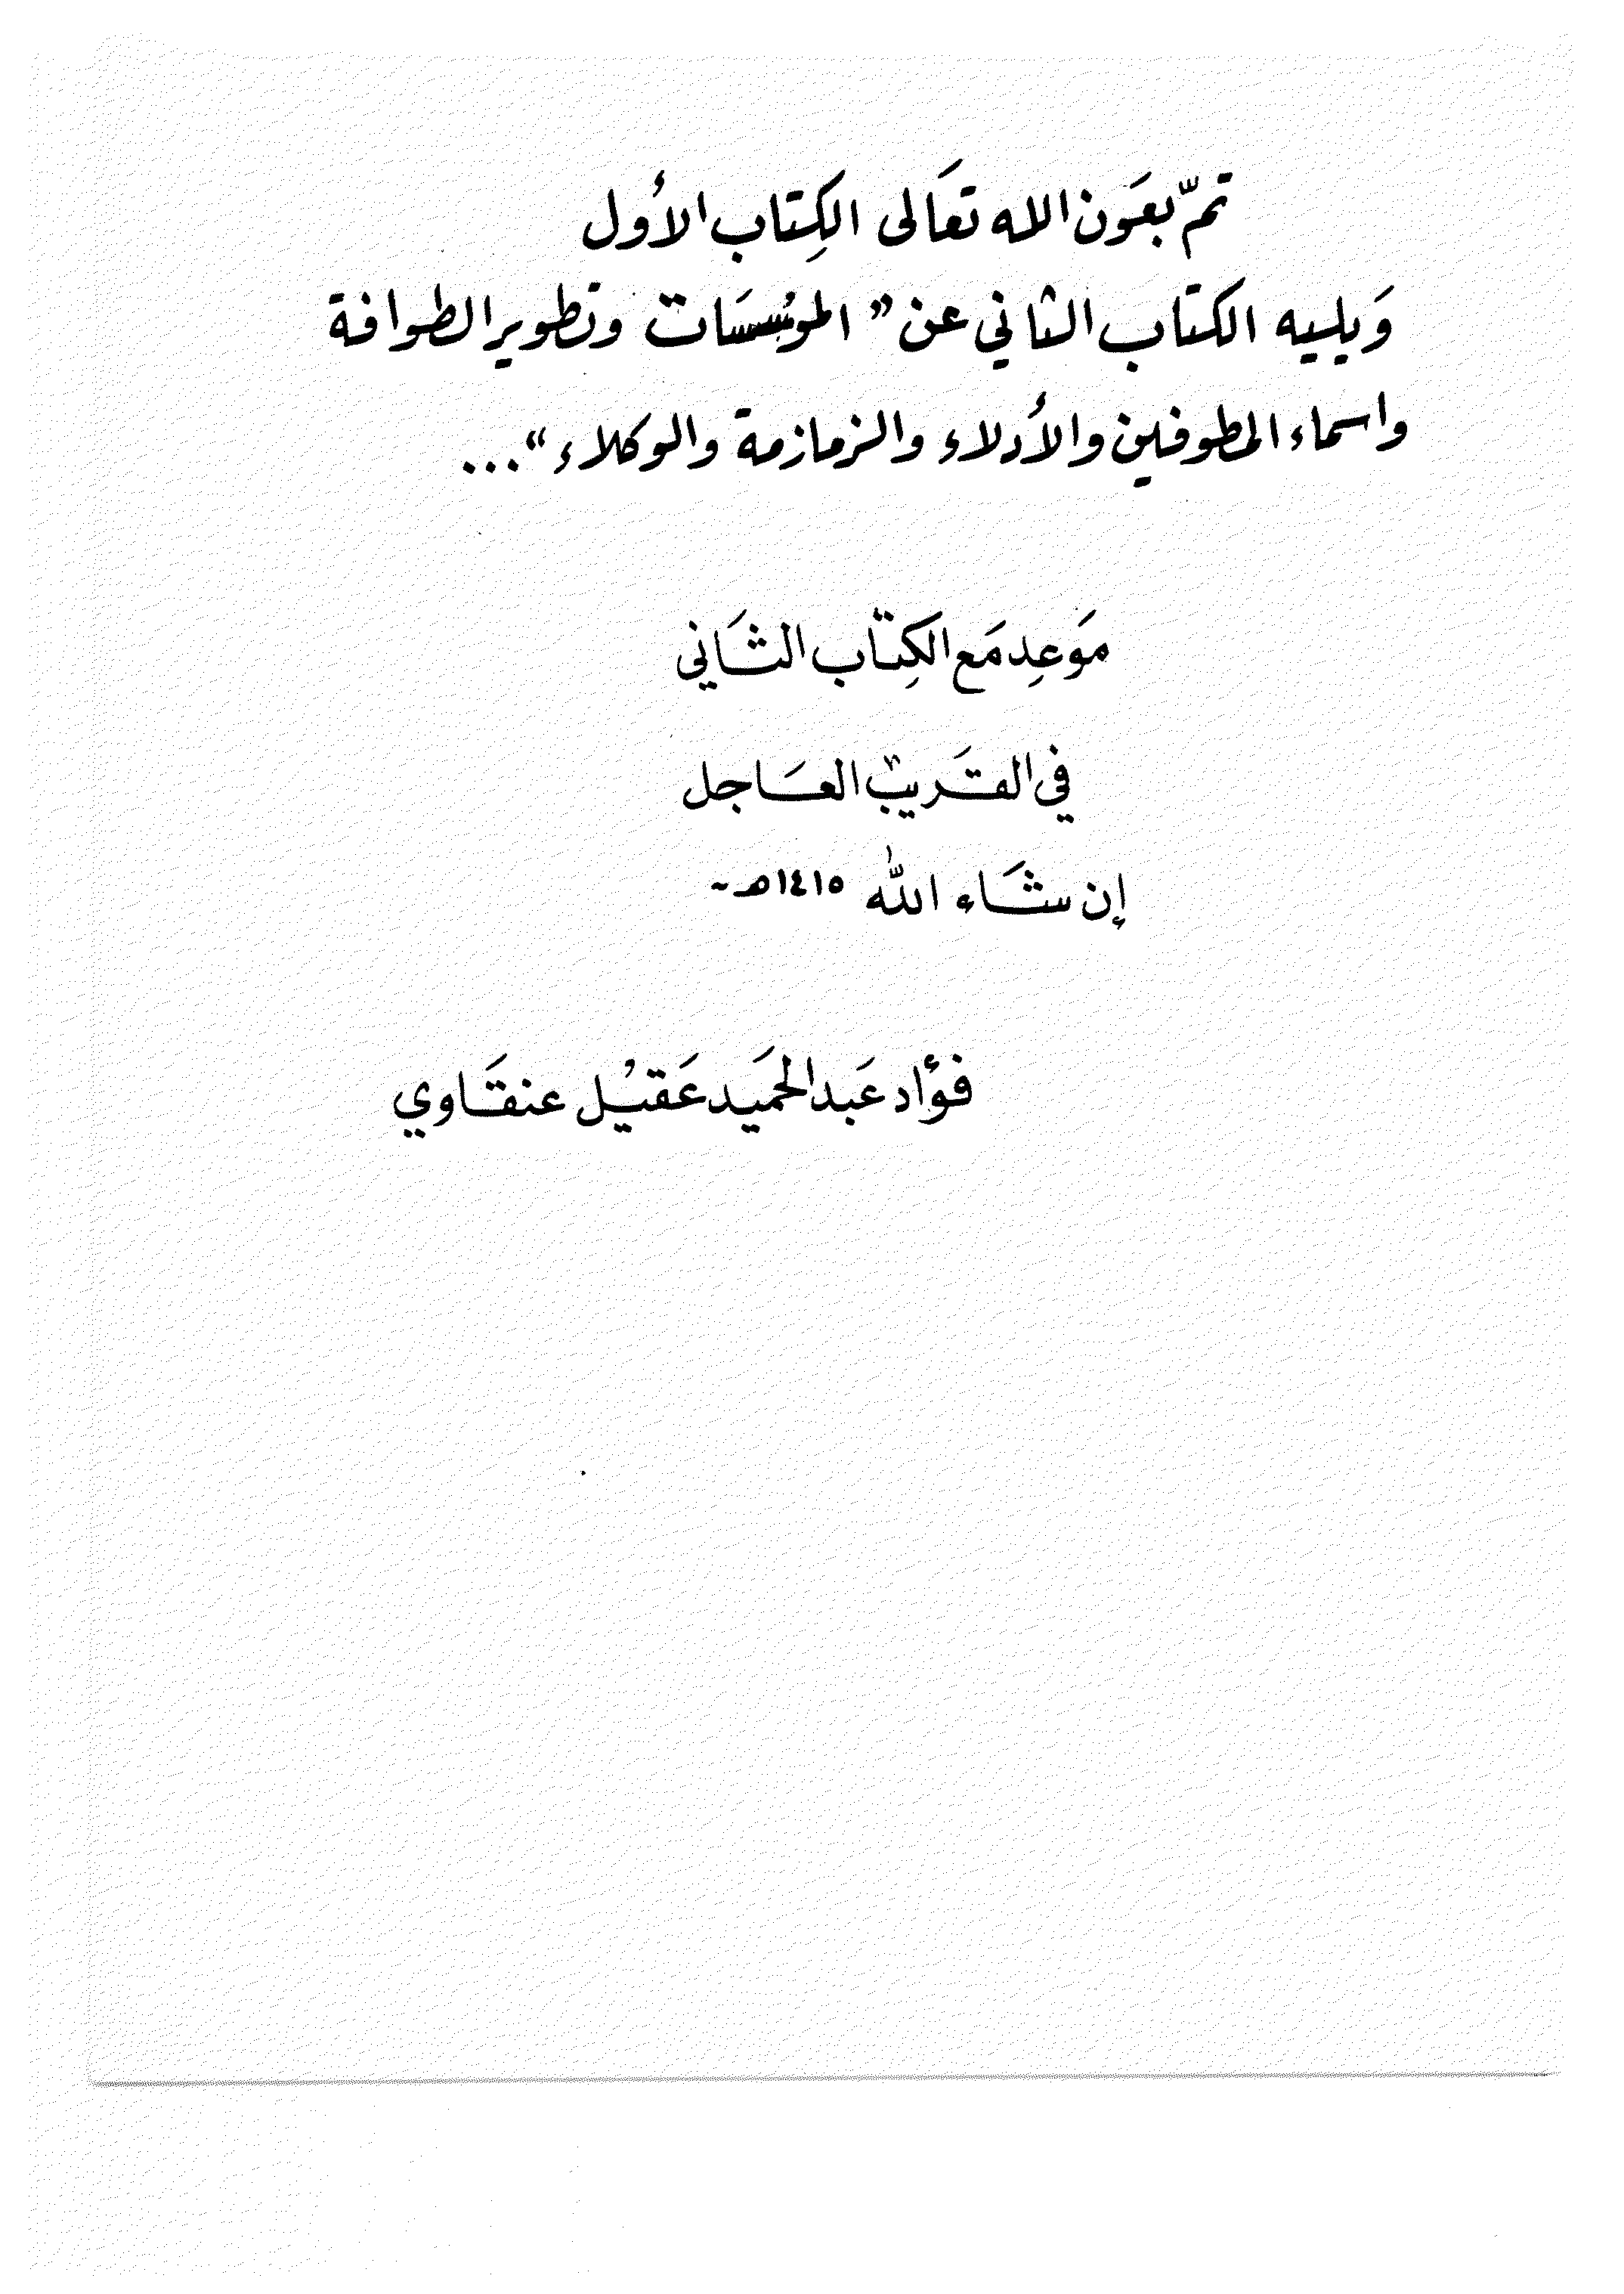 تمّ بعَون الله تعَالى الكِتاب الأول
وَيليه الكتاب الثاني عن " المؤسسَات وتطوير الطوافة
واسماء المطوفين والأدلاء والزمازمة والوكلاء "...
مَوعِد مَع الكِتاب الثَاني
في القَريب العَاجل
إن شَاء الله ١٤١٥هـ
فؤاد عَبد الحَميد عَقيل عنقَاوي